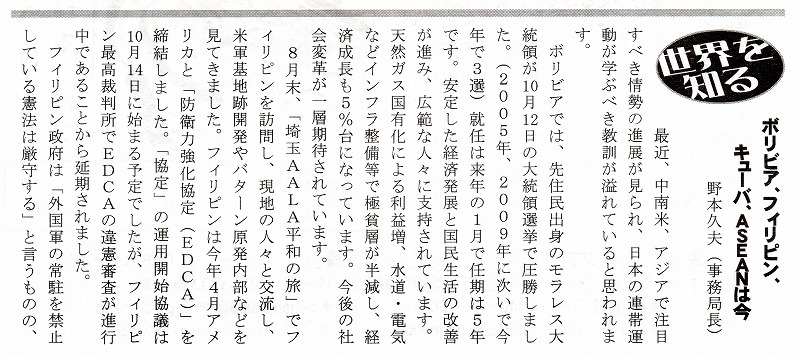 世界を
知る
ボリビア、フィリピン、
キューバ、ASEANは今
野本久夫(事務局長)
最近、中南米、アジアで注目
すべき情勢の進展が見られ、日本の連帯運
動が学ぶべき教訓が溢れていると思われま
す。
ボリビアでは、先住民出身のモラレス大
統領が10月12日の大統領選挙で圧勝しまし
た。(2005年、2009年に次いで今
年で3選)就任は来年の1月で任期は5年
です。安定した経済発展と国民生活の改善
が進み、広範な人々に支持されています。
天然ガス国有化による利益増、水道・電気
などインフラ整備等で極貧層が半減し、経
済成長も5%台になっています。今後の社
会変革が一層期待されています。
8月末、「埼玉AALA平和の旅」でフ
ィリピンを訪問し、現地の人々と交流し、
米軍基地跡開発やバターン原発内部などを
見てきました。フィリピンは今年4月アメ
リカと「防衛力強化協定(EDCA)」を
締結しました。「協定」の運用開始協議は
10月14日に始まる予定でしたが、フィリピ
ン最高裁判所でEDCAの違憲審査が進行
中であることから延期されました。
フィリピン政府は「外国軍の常駐を禁止
している憲法は厳守する」と言うものの、